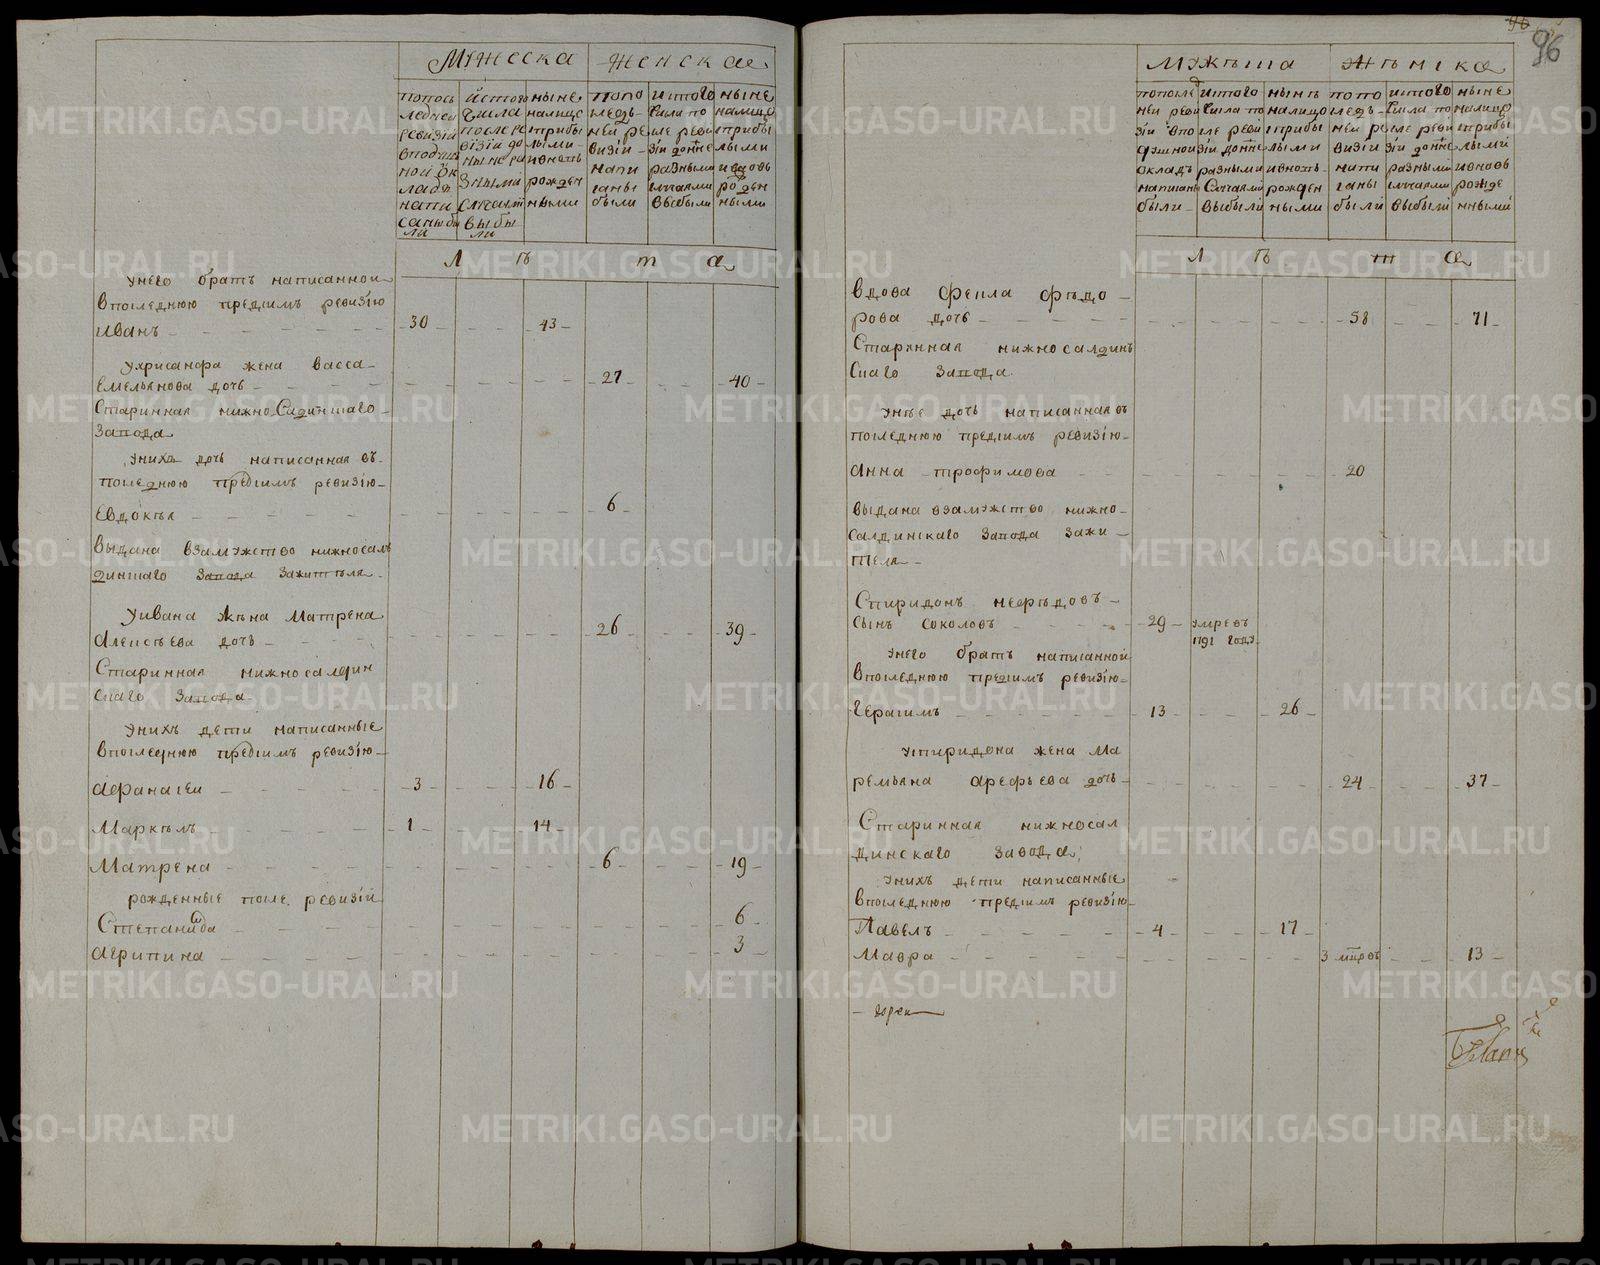 Мужеска Женска
попось
ледней
ревизiи
вподуш
ной ок
ладъ
напи
саны бы
ли
Истого
числа
после ре
визiи до
ныне ра
зными
случаями
выбы
ли
ныне
налицо
стрибы
лыми
ивновь
рожден
ными
попо
следъ
ней ре
визiи
напи
саны
были
истого
числа по
сле реви
зiи доне
разными
случаями
выбыли
ныне
налицо
сприбы
лыми
ивновь
рожден
ными
Л ѣ т а
Унего братъ написанной
впоследнюю предсимъ ревизiю
Иванъ 30 43
Ухрисанфа жена васса
Емельянова дочь 27 40
Старинная нижно Салдинскаго
Завода
Унихъ дочь написанная въ
последнюю предсимъ ревизiю
Евдокѣя 6
Выдана взамужство нижносал
динскаго Завода Зажителя
Уивана жѣна Матрена
Алексѣева дочь 26 39
Старинная нижносалдин
скаго Завода
Унихъ дети написанные
впоследнюю предсимъ ревизiю
Афанасей 3 16
Маркѣлъ 1 14
Матрена 6 19
рожденные после ревизiй
Степанида 6
Агрипина 3
96
96
Мужѣска Жѣнска
попослед
ней реви
зiи впо
душной
окладъ
написаны
были
истого
числа по
сле реви
зiи доне
разными
случаями
выбыли
нынѣ
налицо
сприбы
лыми
ивновь
рожден
ными
попо
следъ
ней ре
визiи
напи
саны
были
истого
числа по
сле реви
зiи доне
разными
случаями
выбыли
ныне
налицо
сприбы
лыми
ивновь
рожде
нными
Л ѣ т а
вдова Фекла Фѣдо
рова дочь 58 71
Старинная нижносалдинъ
скаго Завода
Унѣе дочь написанная въ
последнюю предсимъ ревизiю
Анна трофимова 20
выдана взамужство нижно
салдинскаго Завода Зажи
теля
Спиридонъ нефѣдовъ
сынъ соколовъ 29 умре въ
1791 году
Унего братъ написанной
впоследнюю предсимъ ревизiю
Герасимъ 13 26
Успиридона жена Ма
ремьяна Арефьева дочь 24 37
Старинная нижносал
динскаго Завода
Унихъ дети написанные
впоследнюю предсимъ ревизiю
Павелъ 4 17
Мавра 3 13
METRIKI.GASO-URAL.RU